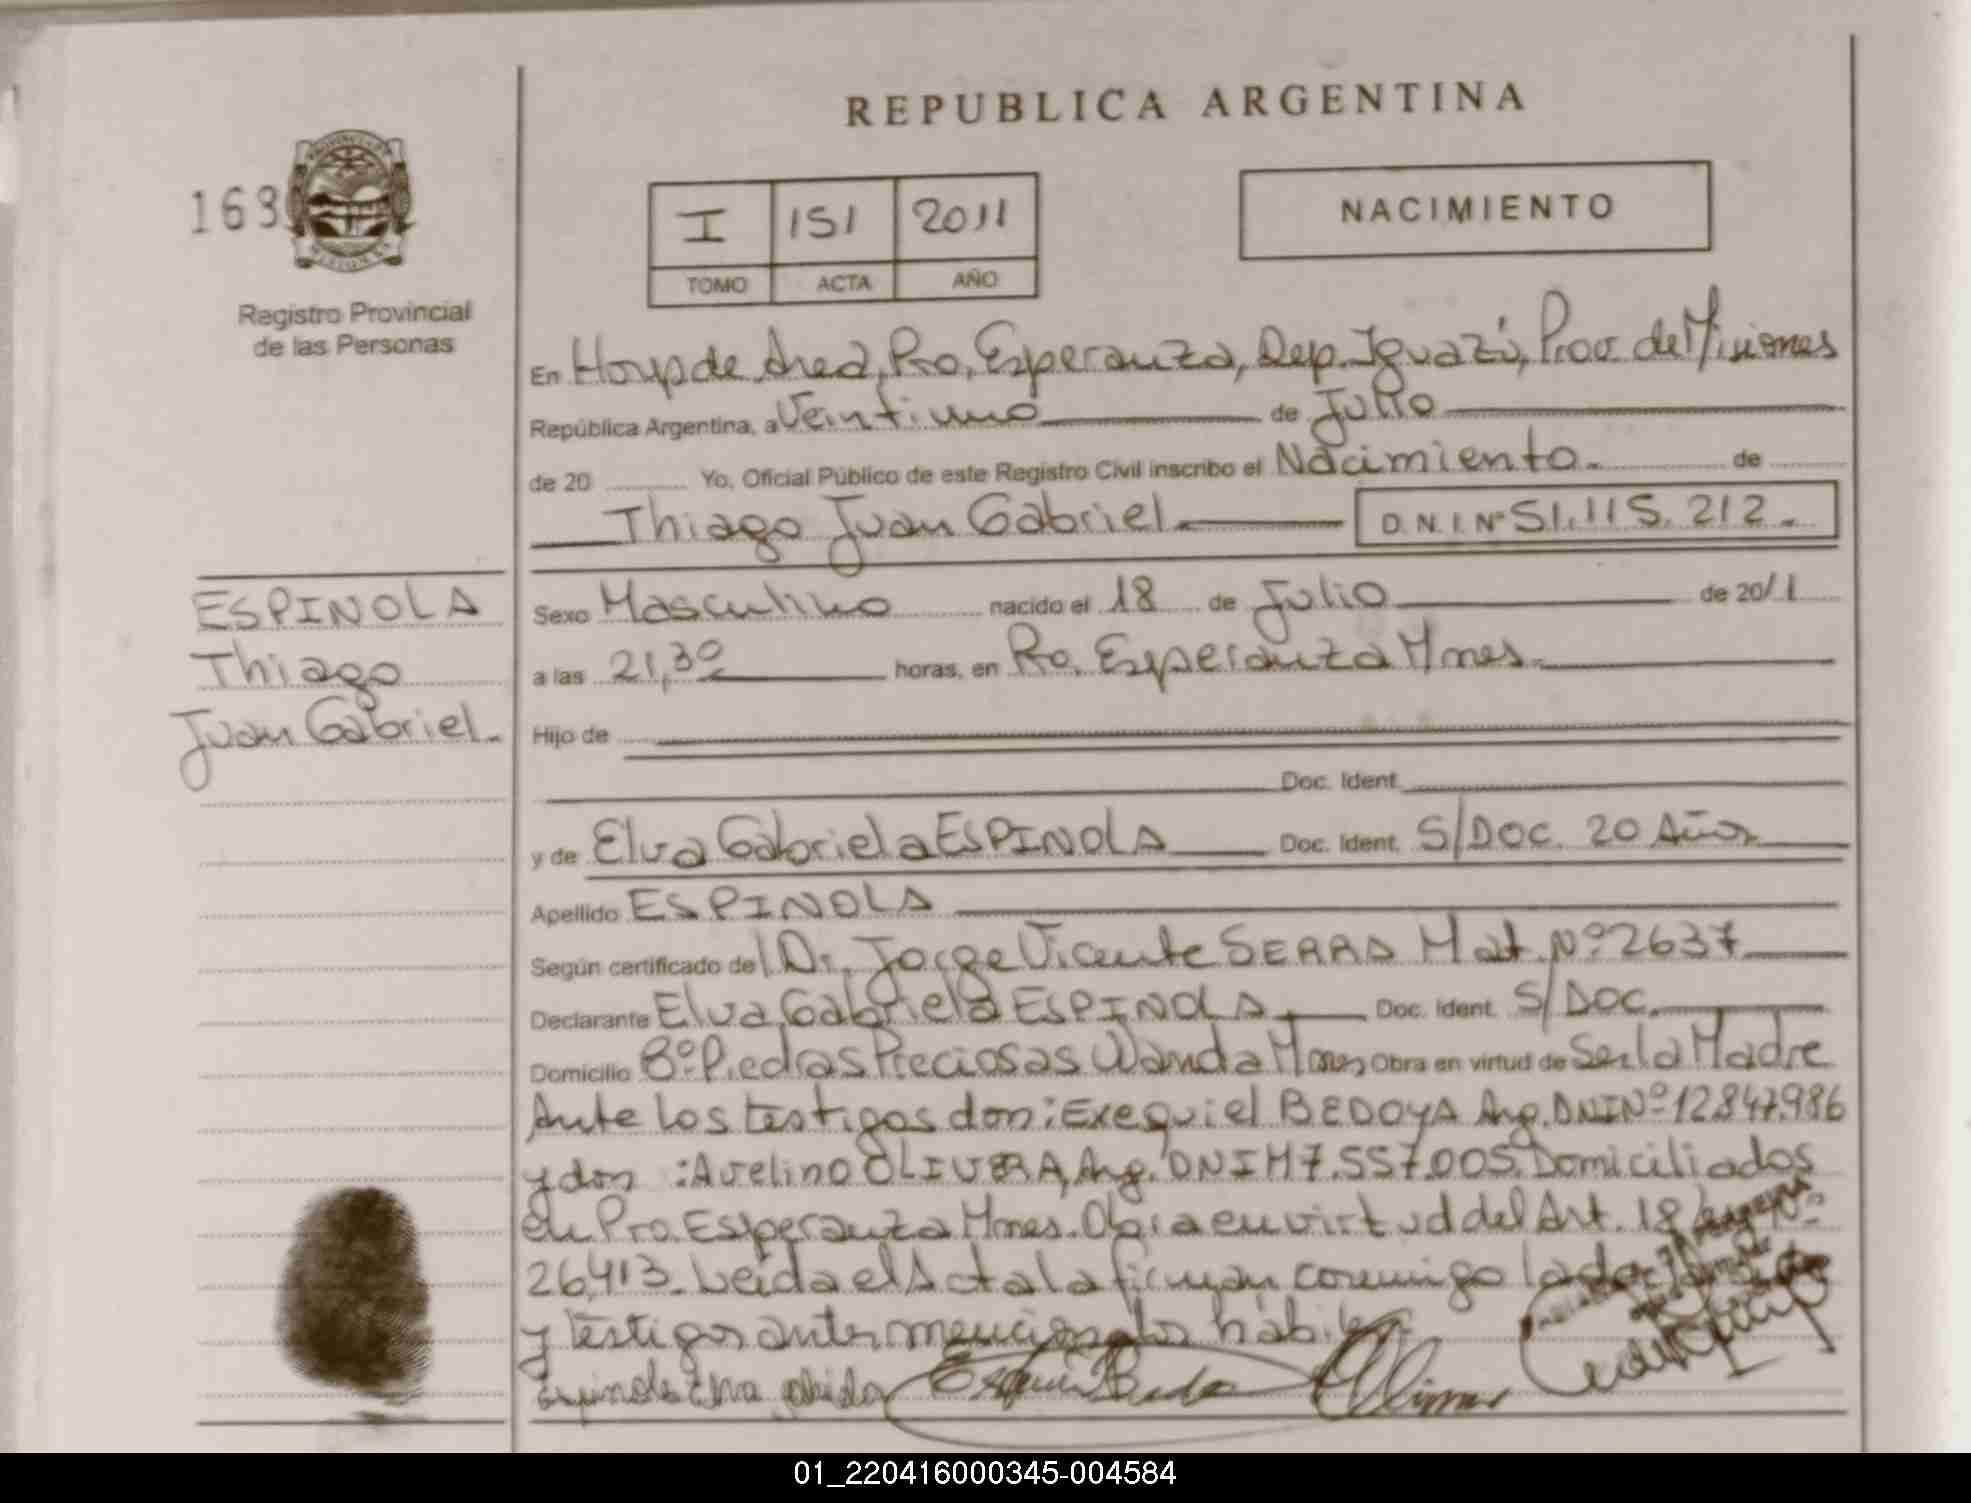 REPUBLICA ARGENTINA
163
I 151 2011
TOMO ACTA AÑO
NACIMIENTO
Registro Provincial
de las Personas
En Hosp de Area, Pto, Esperanza, Dep. Iguazú, Prov de Misiones
República Argentina, a Veintiuno de Julio
de 20 Yo, Oficial Público de este Registro Civil inscribo el Nacimiento. de
Thiago Juan Gabriel. D.N.I. Nº 51.115.212.
ESPINOLA
Thiago
Juan Gabriel.
Sexo Masculino nacido el 18 de Julio de 2011
a las 21,30 horas, en Pto. Esperanza Mnes.
Hijo de
Doc. Ident.
y de Elva Gabriela ESPINOLA Doc. Ident. S/DOC. 20 Años
Apellido ESPINOLA
Según certificado del Dr. Jorge Vicente SERRA Mat. Nº 2637
Declarante Elva Gabriela ESPINOLA Doc. Ident. S/DOC.
Domicilio Bº Piedras Preciosas Wanda Mnes Obra en virtud de Ser la Madre
Ante los testigos don: Exequiel BEDOYA Arg. DNI Nº 12.847.986
y don : Avelino OLIVERA, Arg. DNI M 7.557.005. Domiciliados
en Pto. Esperanza Mnes. Obra en virtud del Art. 18 Ley Nº
26.413. Leida el Acta la firman conmigo la
y testigos antes mencionados hábiles
01_220416000345-004584